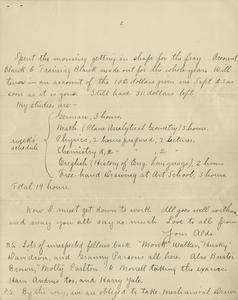 2
Spent the morning getting in shape for the fray. Account
Blank & Training Blank made out for the whole year. Will
turn in an account of the 100 dollars given me Sept 23 as
soon as it is gone. Still have 30 dollars left.
My studies are -
German, 3 hours.
Math (Plane Analytical Geometry) 3 hours.
Physics, 2 hours prepared, 2 lectures.
Chemistry 2
English (History of Eng. Language), 2 hours
Free-hand Drawing at Art School, 3 hours
week's
schedule
Total 19 hours.
Now I must get down to work. All goes well with me
and may you all say as much. Love to all from
Aldo
P.S. Lots of unexpected fellows back "Monk" Walker, "Husky"
Davidson, and Granny Parsons all here. Also Buster
Brown, "Molly" & Morrill taking the exams.
Ham Andrus too, and Harry Yale.
P.S. By the way, we are obliged to take Mechanical Drawing